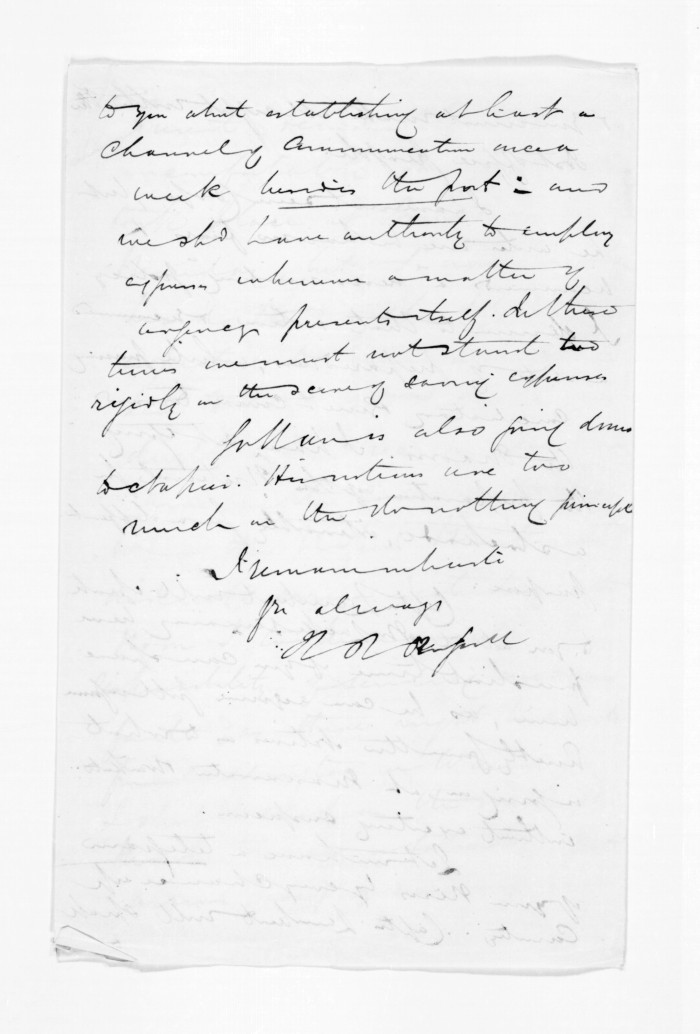 to you about establishing at least a
Channel of Communication once a
week besides the post - and
we shd have authority to employ
expresses whenever a matter of
urgency presents itself. In these
times we must not stand too
rigidly on the score of saving expenses
is also going down
to Otapiri. His notions are too
much on the do nothing principle
I remain in haste
Yrs always
H R Russell